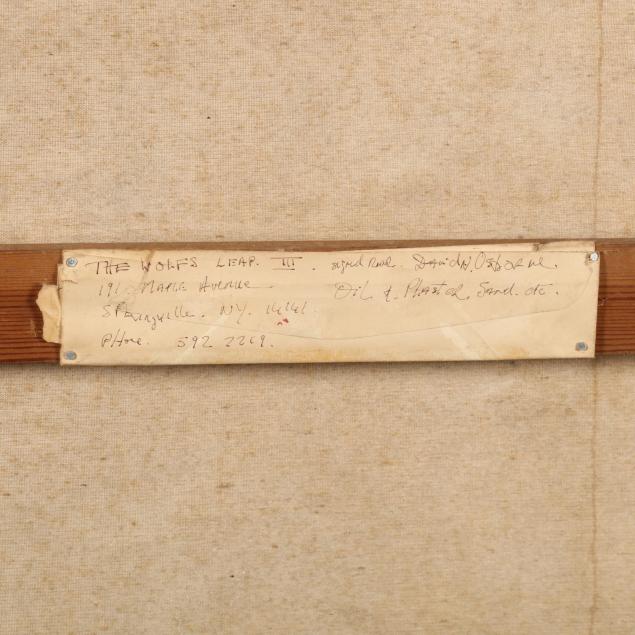 THE WOLFS LEAP. III. signed Rear. David N. Osborne.
191 Maple Avenue Oil & Plaster, Sand. etc.
Springville. NY. 14141.
PHone. 592 2269.